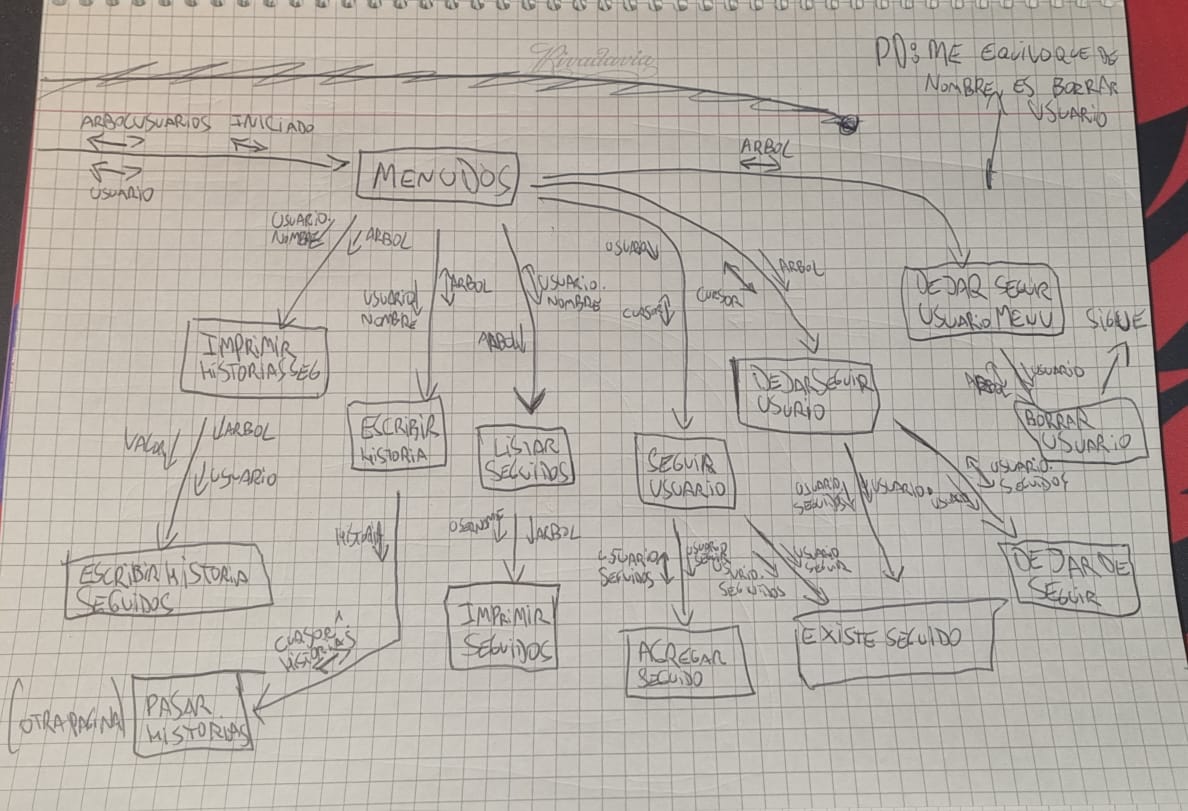 Rivadavia
PD: ME EQUIVOQUE DE
NOMBRE, ES BORRAR
USUARIO
ARBOLUSUARIOS INICIADO
USUARIO
MENUDOS
ARBOL
USUARIO.
NOMBRE
ARBOL
USUARIO
NOMBRE
ARBOL
USUARIO.
NOMBRE
ARBOL
CURSOR
ARBOL
DEJAR SEGUIR
USUARIO MENU
SIGUE
IMPRIMIR
HISTORIASSEG
ESCRIBIR
HISTORIA
LISTAR
SEGUIDOS
SEGUIR
USUARIO
DEJARSEGUIR
USURIO
ARBOL
USUARIO
BORRAR
USUARIO
VALOR
ARBOL
USUARIO
HISTORIA
ARBOL
USUARIO
SEGUIDOS
USUARIO.
SEGUIR
USURIO.
SEGUIDOS
USUARIO
SEGUIR
USUARIO.
SEGUIDOS
USUARIO.
USUARIO.
SEGUIDOS
ESCRIBIR HISTORIA
SEGUIDOS
IMPRIMIR
SEGUIDOS
AGREGAR
SEGUIDO
EXISTE SEGUIDO
DEJAR DE
SEGUIR
CURSOR
HISTORIAS
(OTRA PAGINA)
PASAR
HISTORIAS